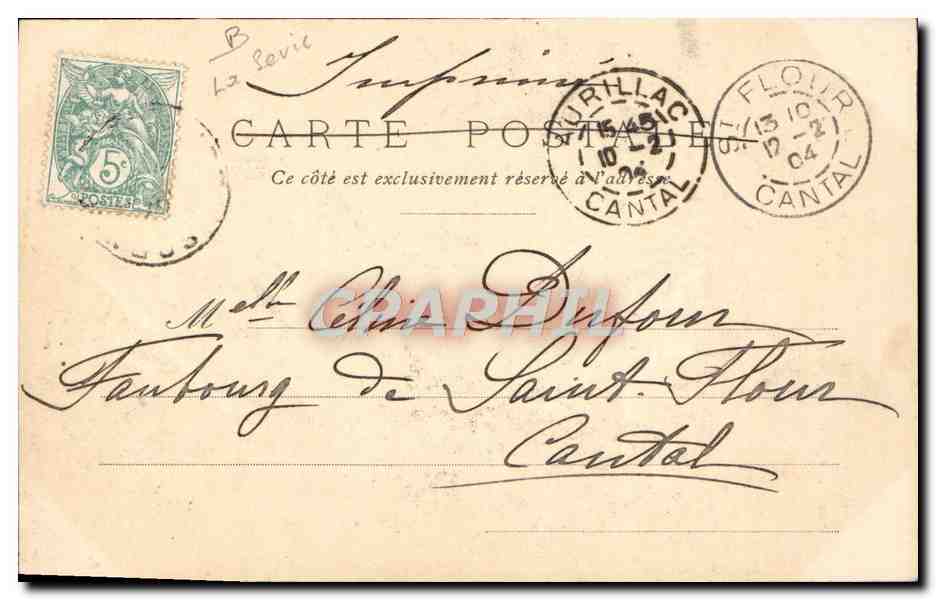 B
La Serie
Imprimé
CARTE POSTALE
Ce côté est exclusivement réservé à l'adresse
5c
POSTES
AURILLAC
15 45
10 -2
04
CANTAL
ST FLOUR
13 10
12 -2
04
CANTAL
CRAPHIL
Melle Céline Dufour
Faubourg de Saint-Flour
Cantal